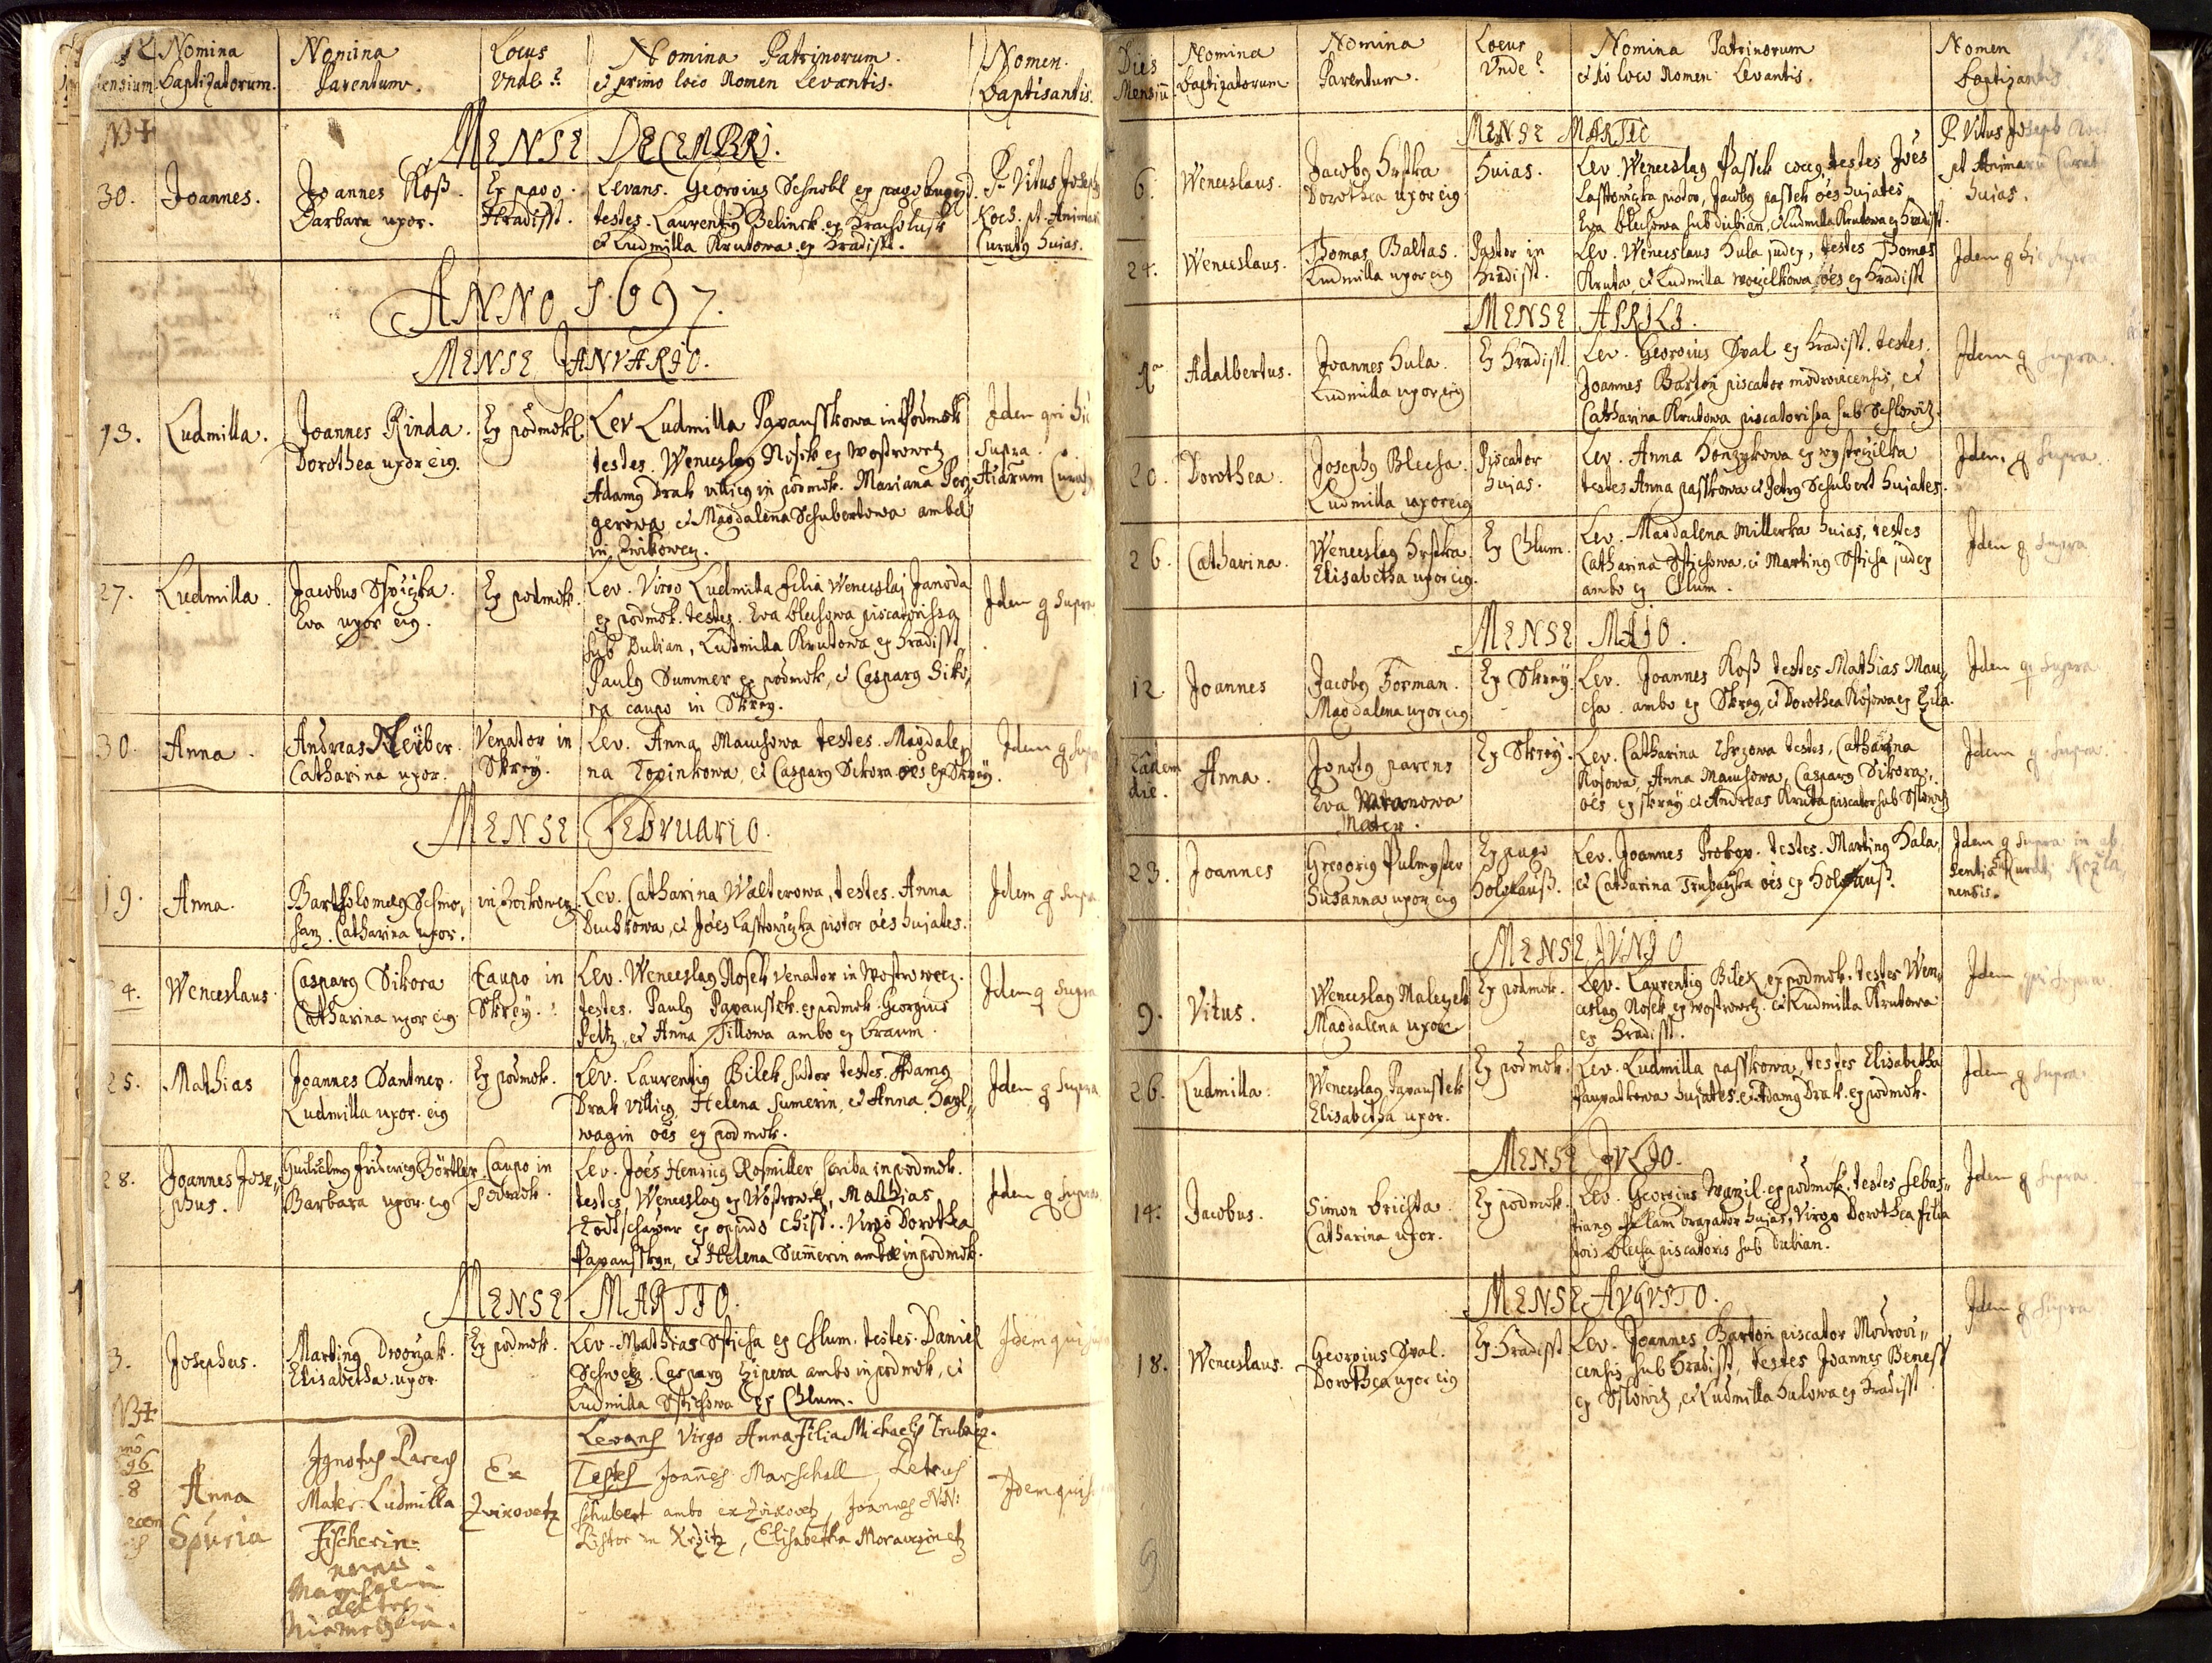 Nomina Baptizatorum.
Nomina Parentum.
Locus Vnde?
Nomina Patrinorum.
et primo loco Nomen Levantis.
Nomen Baptisantis.
MENSE DECEMBRI.
30. Joannes.
Joannes Roß.
Barbara uxor.
Ex pago
Hradisst.
Levans. Georgius Schnobl ex pago
testes. Laurentius Belinek ex
et Ludmilla Krutowa ex Hradisst.
P. Vitus Joseph
Koch. pt. Animar
Curatus huias.
ANNO 1697.
MENSE JANVARIO.
13. Ludmilla.
Joannes Rinda.
Dorothea uxor eius.
Ex podmokl
Lev. Ludmilla Papausskowa in Podmok
testes. Wenceslaus Nosek ex Wostrowetz
Adamus Drak villicus in podmok. Mariana
gerowa et Magdalena Schubertowa ambae
in Zwikowez.
Idem qui hic
supra.
27. Ludmilla.
Jacobus Spiczka.
Eva uxor eius.
Ex podmok.
Lev. Virgo Ludmila filia Wenceslai Janoda
ex podmok. testes. Eva blechowa piscatorissa
sub Dubian, Ludmilla Krutowa ex Hradisst
Paulus Summer ex podmok, et Casparus Siko
ra caupo in Skrey.
Idem q supra
30. Anna.
Andreas Kleiber.
Catharina uxor.
Venator in
Skrey.
Lev. Anna Mauchowa testes. Magdale
na Topinkowa, et Casparus Sikora oes ex Skrey.
Idem q supra
MENSE FEBRUARIO.
19. Anna.
Bartholomeus Schmo,
Catharina uxor.
in Zwikowez.
Lev. Catharina Walterowa, testes. Anna
Duchkowa, et Joes Lastowiczka pistor oes hujates.
Idem q supra
24. Wenceslaus
Casparus Sikora
Catharina uxor eius
Caupo in
Skrey.
Lev. Wenceslaus Nosek Venator in Wostrowecz.
testes. Paulus Papaustek ex podmok. Georgius
Peltz, et Anna Tillowa ambo ex
Idem q supra
25. Mathias
Joannes Santner.
Ludmilla uxor. eius
Ex podmok.
Lev. Laurentius Bilek sutor testes. Adamus
Drak villicus, Helena Sumerin, et Anna Hayl
wagin oes ex podmok.
Idem q supra
28. Joannes Jose,
phus.
Guilielmus Fridericus Hörtler.
Barbara uxor. eius
Caupo in
Podmok.
Lev. Joes Henricus Rosmiller scriba in podmok.
testes, Wenceslaus ex Wostrowe, Mathias
ex opido Chist.. Virgo Dorothea
Papausskyn, et Helena Sumerin ambae in podmok.
Idem q supra
MENSE MARTIO.
3. Josephus.
Martinus Dworzak.
Elisabetha. uxor.
Ex podmok.
Lev. Mathias Sticha ex Chlum. testes. Daniel
Schwetz. Casparus Hipera ambo in podmok, et
Ludmilla Stichowa ex Chlum.
Idem qui
Anna
Spuria
Ignotus Parens
Mater. Ludmilla
Fischerin
Ex
Zwikovetz
Levans Virgo Anna Filia Michaelis Trubacz.
Testes Joannes Marschall, Petrus
Schubert ambo ex Zwikovetz, Joannes N.N:
Pistor in Krzitz, Elisabetha Moravczinetz
Idem qui
Dies Mensiu.
Nomina Baptizatorum
Nomina Parentum.
Locus Vnde?
Nomina Patrinorum
et 1o loco Nomen Levantis.
Nomen
MENSE MARTIO
6. Wenceslaus.
Jacobus Hrstka
Dorothea uxor eius
huias.
Lev. Wenceslaus Passek testes Joes
Lastowiczka pistor, Jacobus passek oes hujates
Eva blechowa sub dubian, et Ludmilla Krutowa ex Hradisst.
P. Vitus Joseph Koch
pt Animaru Curat
huias.
24. Wenceslaus.
Thomas Baltas.
Ludmilla uxor eius
Pastor in
Hradisst.
Lev. Wenceslaus Hula judex, testes Thomas
Kruta et Ludmilla woczilkowa, oes ex Hradisst
Idem q hic supra
MENSE APRILI.
1a Adalbertus.
Joannes Hula.
Ludmilla uxor eius
Ex Hradisst.
Lev. Georgius Swal ex Hradisst. testes.
Joannes Barton piscator modrovicensis, et
Catharina Krutowa piscatorissa sub Schlowitz.
Idem q supra.
20. Dorothea.
Josephus Blecha.
Ludmilla uxor eius
Piscator
huias.
Lev. Anna Honzykowa ex
testes Anna passkowa et Petrus Schubert hujates.
Idem q supra.
26. Catharina.
Wenceslaus Hrstka
Elisabetha uxor eius.
Ex Chlum.
Lev. Magdalena Millerka huias, testes
Catharina Stichowa, et Martinus Sticha judex
ambo ex Chlum.
Idem q supra
MENSE MAIO.
12. Joannes
Jacobus Forman.
Magdalena uxor eius
Ex Skrey.
Lev. Joannes Roß testes Mathias Mau,
cha. ambo ex Skrey, et Dorothea Rosowa ex
Idem q supra
Eadem
die.
Anna.
Ignotus parens
Eva
Mater.
Ex Skrey.
Lev. Catharina testes, Catharina
Rosowa, Anna Mauchowa, Casparus Sikora,
oes ex skrey et Andreas Kruta piscator sub Slowitz
Idem q supra.
23. Joannes
Gregorius Pulmyster
Susanna uxor eius
Ex pago
Holokauß.
Lev. Joannes Prokop. testes. Martinus Hala,
et Catharina Trubaczka oes ex Holokauß.
Idem q supra in ab
sentia Curati
nensis.
MENSE JVNIO
9. Vitus.
Wenceslaus Maleczek
Magdalena uxor
Ex podmok.
Lev. Laurentius Bilek, ex podmok. testes Wen,
ceslaus Nosek, ex wostrowetz. et Ludmilla Krutowa
ex Hradisst.
Idem qui supra.
26. Ludmilla.
Wenceslaus Papausstek
Elisabetha uxor.
Ex podmok.
Lev. Ludmilla passkowa, testes Elisabetha
hujates. et Adamus Drak. ex podmok.
Idem q supra.
MENSE JVLIO.
14. Jacobus.
Simon brichta.
Catharina uxor.
Ex podmok
Lev. Georgius ex podmok. testes Sebas,
tianus huias, Virgo Dorothea filia
Jois blecha piscatoris sub Dubian.
Idem q supra.
MENSE AVGVSTO.
18. Wenceslaus.
Georgius Swal.
Dorothea uxor eius
Ex Hradisst
Lev. Joannes Barton piscator Modrovi,
censis sub Hradisst, testes Joannes Beness
ex Slowitz, et Ludmilla Hulowa ex Hradisst
Idem q supra